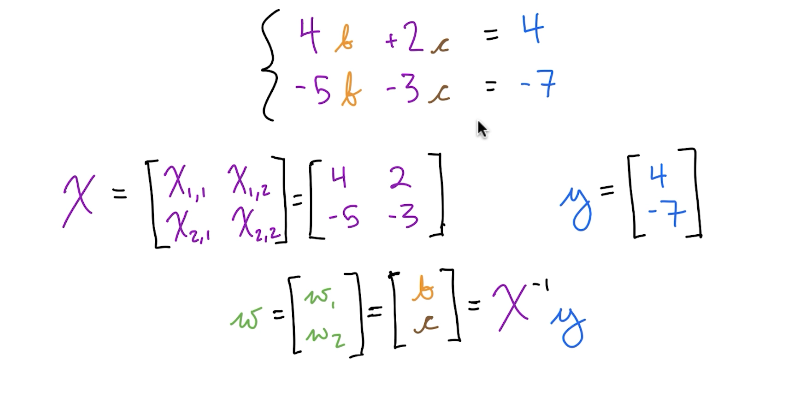 4b +2c = 4
-5b -3c = -7
X = [X₁,₁ X₁,₂ X₂,₁ X₂,₂] = [4 2 -5 -3] y = [4 -7]
w = [w₁ w₂] = [b c] = X⁻¹ y